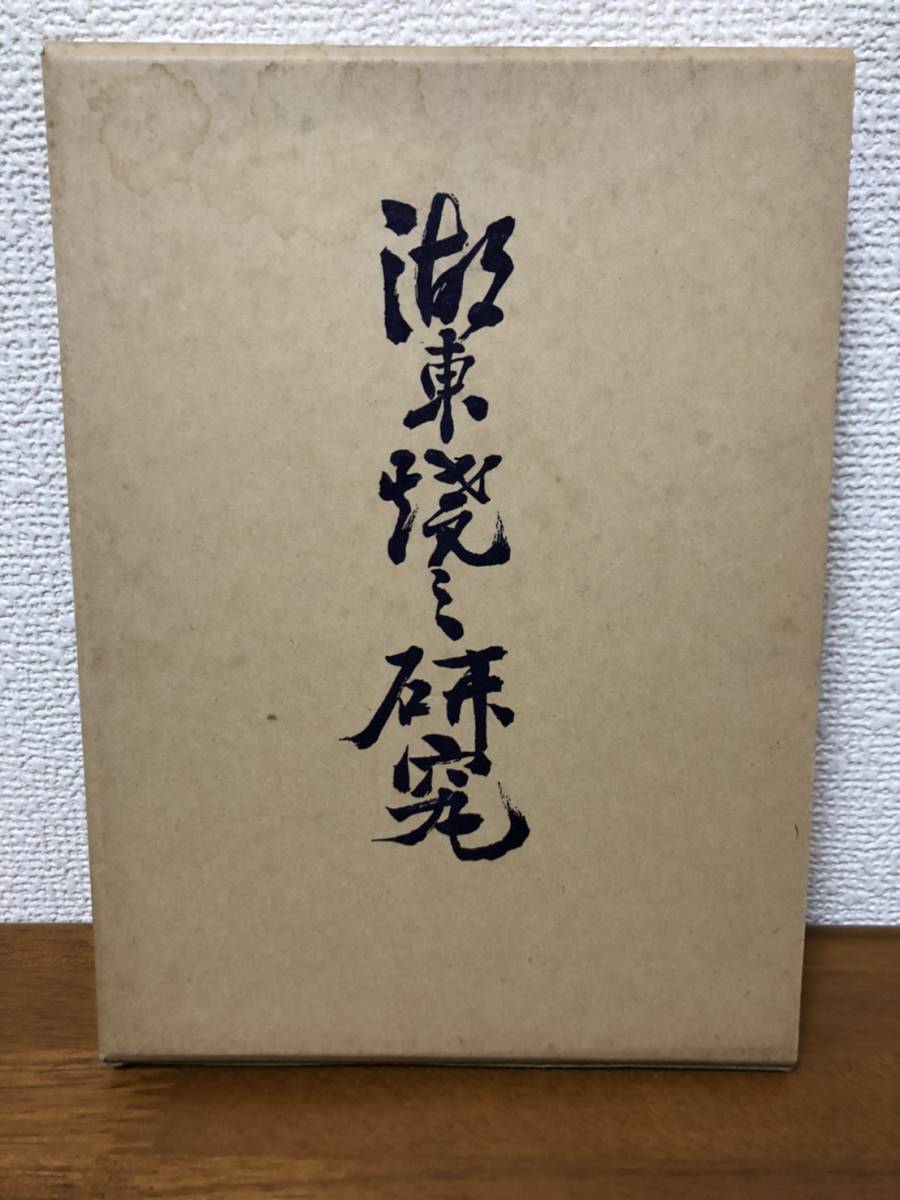 湖東焼之研究